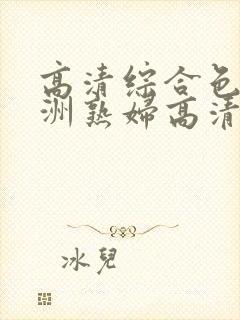 高清綜合色
洲熟婦高清
冰兒